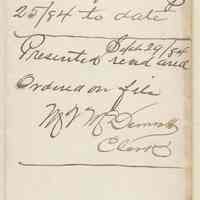 25/84 to date
Sept 29/84
Presented read and
Ordered on file
Clerk